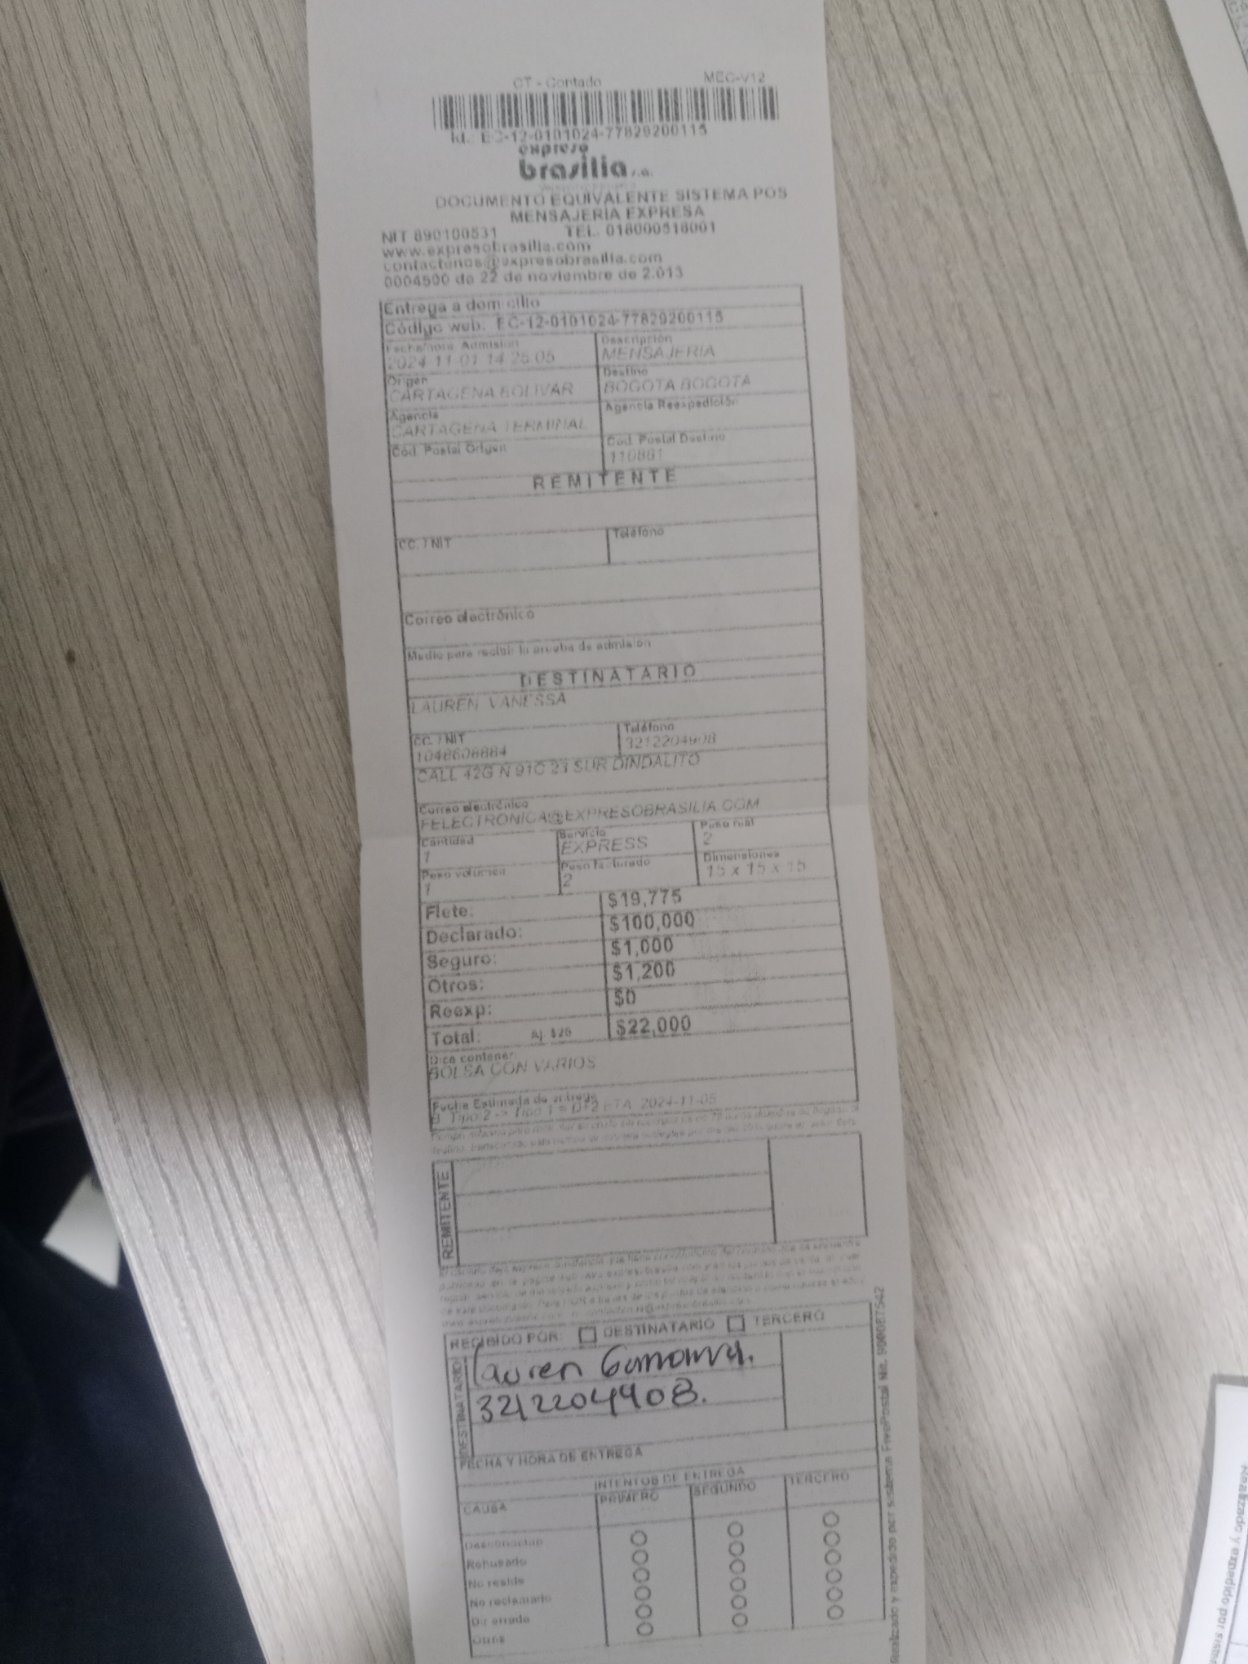 CT - Contado MEC-V12
Id.: EC-12-0101024-77829200115
expreso
brasilia s.a.
DOCUMENTO EQUIVALENTE SISTEMA POS
MENSAJERIA EXPRESA
NIT 890100531 TEL. 018000518001
www.expresobrasilia.com
contactenos@expresobrasilia.com
0004500 de 22 de noviembre de 2.013
Entrega a domicilio
Código web: EC-12-0101024-77829200115
Fecha/hora Admisión Descripción
2024-11-01 14:25:05 MENSAJERIA
Origen Destino
CARTAGENA BOLIVAR BOGOTA BOGOTA
Agencia Agencia Reexpedición
CARTAGENA TERMINAL
Cód. Postal Origen Cód. Postal Destino
110881
REMITENTE
CC. / NIT Teléfono
Correo electrónico
Medio para recibir la prueba de admisión
DESTINATARIO
LAUREN VANESSA
CC. / NIT Teléfono
1048608884 3212204908
CALL 42G N 91C 21 SUR DINDALITO
Correo electrónico
FELECTRONICA@EXPRESOBRASILIA.COM
Cantidad Servicio Peso real
1 EXPRESS 2
Peso volumen Peso facturado Dimensiones
1 2 15 x 15 x 15
Flete: $19,775
Declarado: $100,000
Seguro: $1,000
Otros: $1,200
Reexp: $0
Total: Aj. $25 $22,000
Dice contener
BOLSA CON VARIOS
Fecha Estimada de entrega
B Tipo 2 -> Tipo 1 = D+2 ETA 2024-11-05
REMITENTE
RECIBIDO POR: DESTINATARIO TERCERO
DESTINATARIO
Lauren
3212204908.
FECHA Y HORA DE ENTREGA
INTENTOS DE ENTREGA
CAUSA PRIMERO SEGUNDO TERCERO
Desconocido
Rehusado
No reside
No reclamado
Dir errada
Otros
Realizado y expedido por sistema FivePostal Nit. 900087542
Realizado y expedido por siste